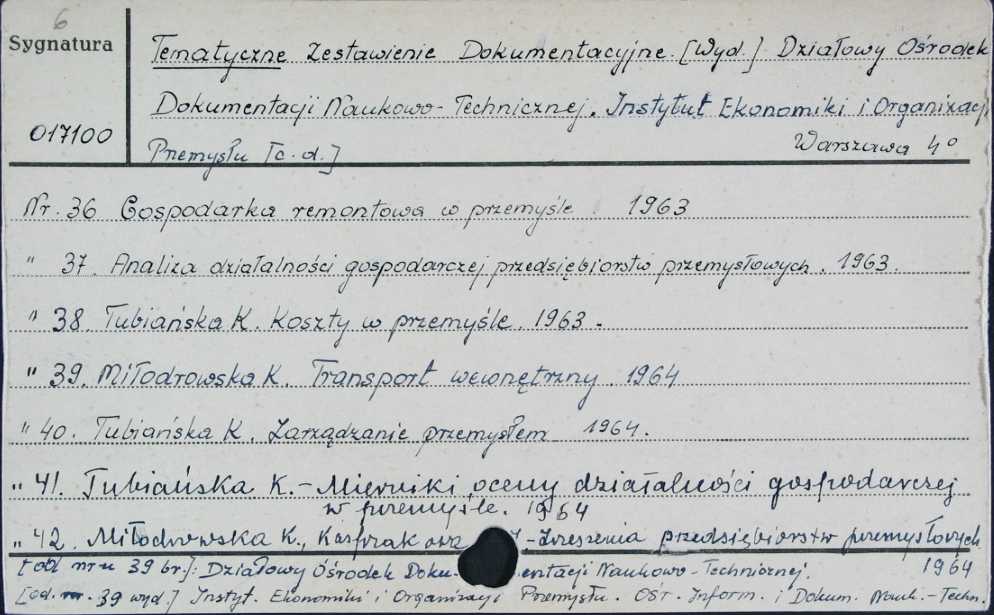 6
Sygnatura
017100
Tematyczne Zestawienie Dokumentacyjne. [Wyd.] Działowy Ośrodek
Dokumentacji Naukowo-Technicznej. Instytut Ekonomiki i Organizacji
Przemysłu [c.d.]
Warszawa 4°
Nr. 36 Gospodarka remontowa w przemyśle. 1963
" 37. Analiza działalności gospodarczej przedsiębiorstw przemysłowych. 1963.
" 38. Tubiańska K. Koszty w przemyśle. 1963.
" 39. Miłodrowska K. Transport wewnętrzny. 1964
" 40. Tubiańska K. Zarządzanie przemysłem 1964.
" 41. Tubiańska K. - Mierniki oceny działalności gospodarczej
w przemyśle. 1964
" 42. Miłodrowska K., Kasprzak - Zrzeszenia przedsiębiorstw przemysłowych
1964
[od nru 39 br.]: Działowy Ośrodek Dokumentacji Naukowo-Technicznej.
[od nr. 39 wyd.] Instyt. Ekonomiki i Organizacji Przemysłu. Ośr. Inform. i Dokum. Nauk.-Techn.